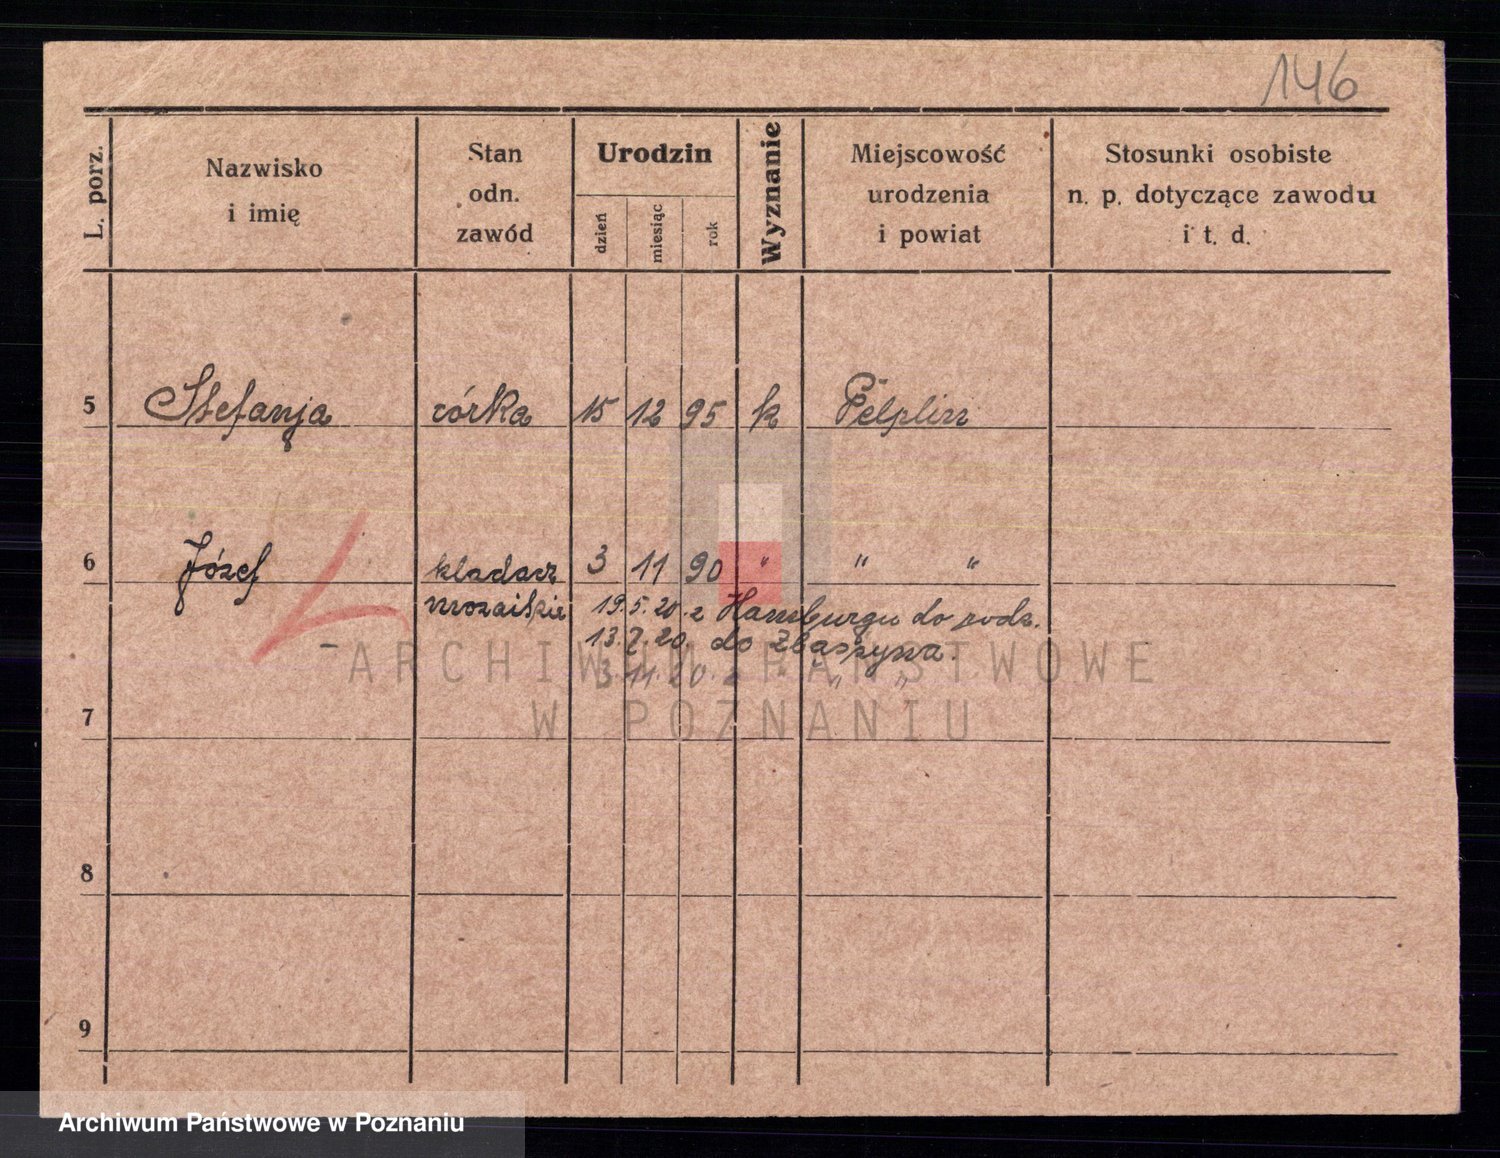 146
L. porz.
Nazwisko
i imię
Stan
odn.
zawód
Urodzin
dzień
miesiąc
rok
Wyznanie
Miejscowość
urodzenia
i powiat
Stosunki osobiste
n. p. dotyczące zawodu
i t. d.
5 Stefanja córka 15 12 95 k Pelplin
6 Józef kladacz 3 11 90 " " "
mozaiskie 19.5.20. z Hamburgu do rodz.
13.7.20. do Zbąszynia.
3.11.20. z " "
ARCHIWUM PAŃSTWOWE
W POZNANIU
7
8
9
Archiwum Państwowe w Poznaniu